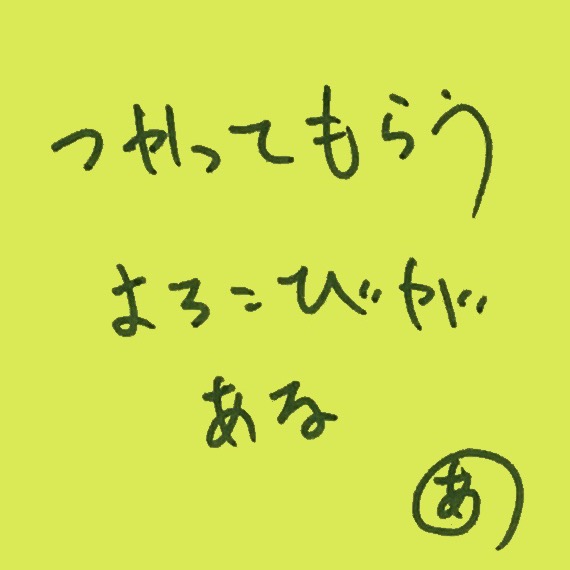 つかってもらう
よろこびが
ある
あ